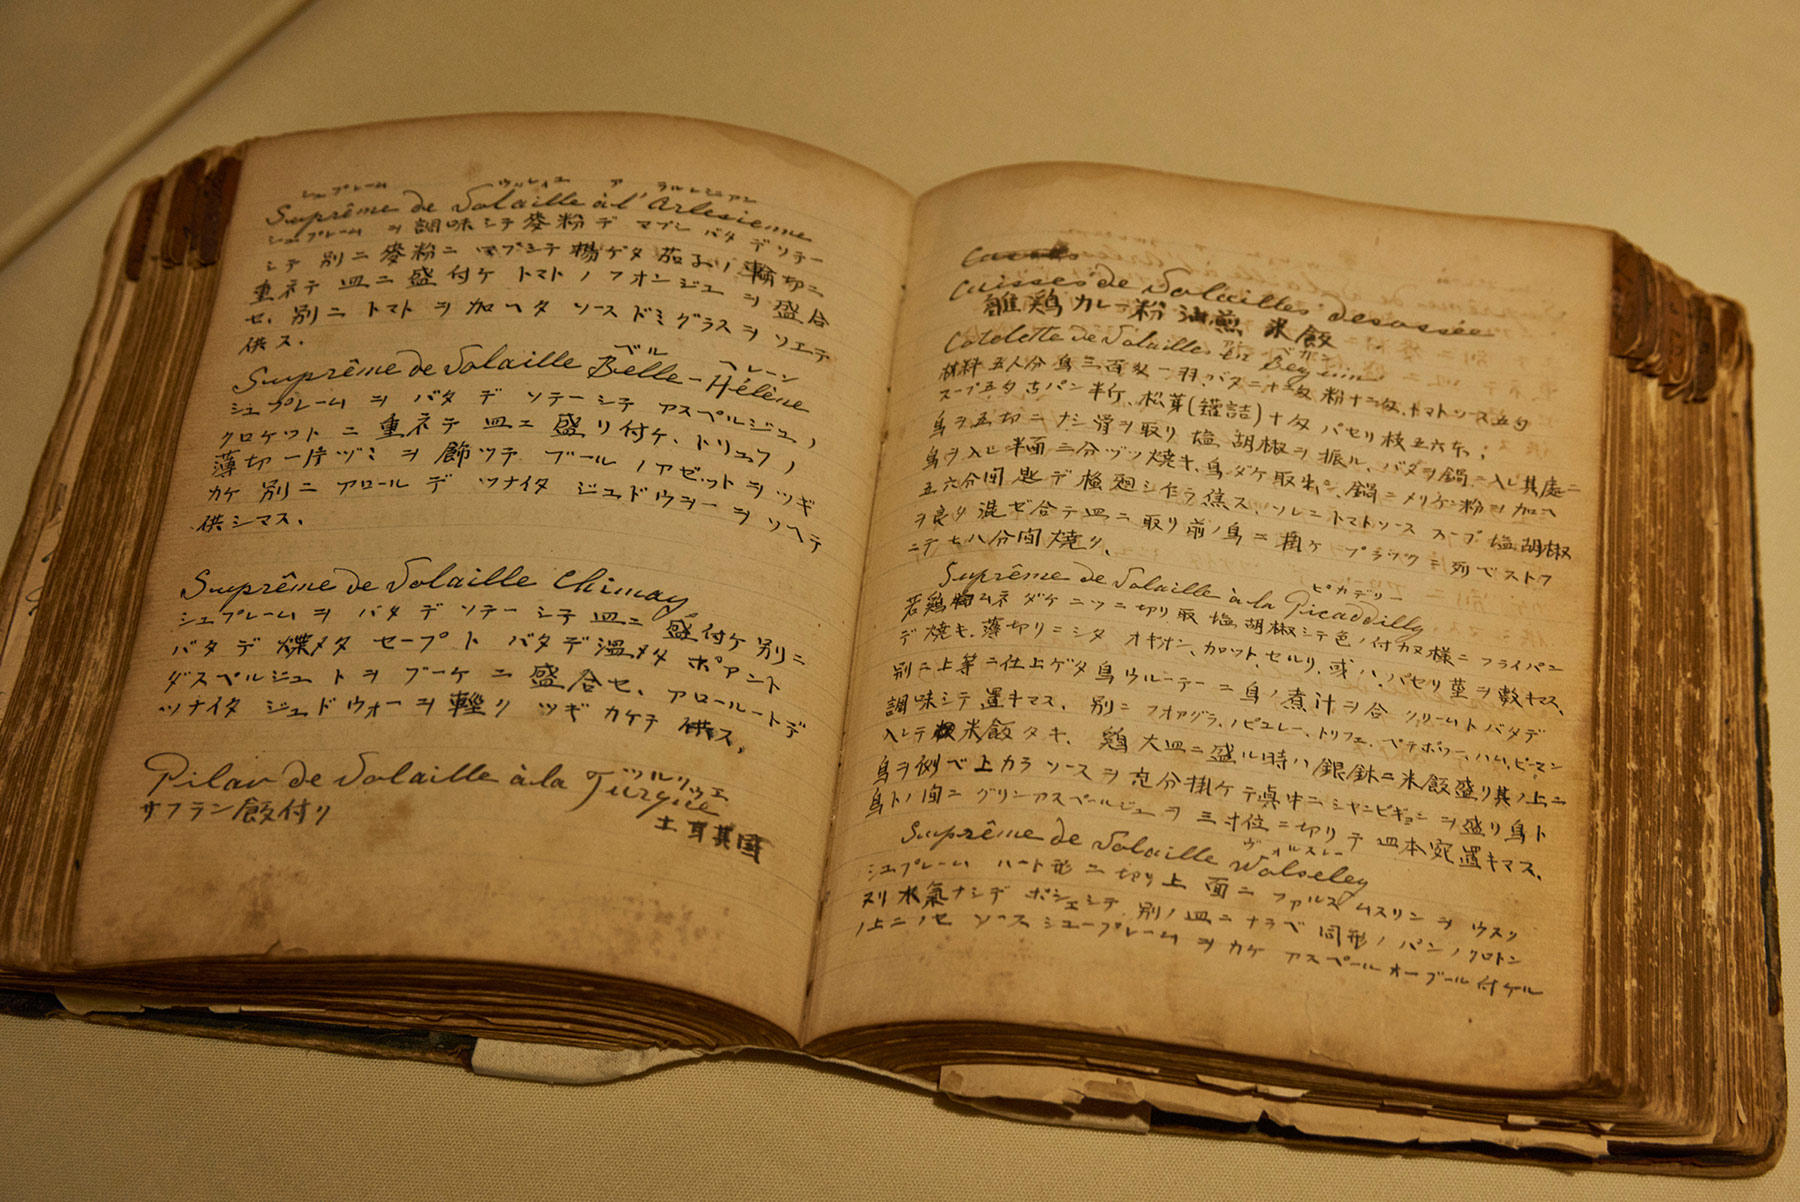 シュプレーム ヴォレイユ ア ラルレジアン
Suprême de Volaille à l'Arlesienne
シュプレーム ヲ 調味シテ 麥粉 デ マブシ バタ デ ソテー
シテ 別ニ 麥粉ニ マブシテ 揚ゲタ 茄子ノ 輪切ニ
重ネテ 皿ニ 盛付ケ トマト ノ フオンジユ ヲ 盛合
セ、別ニ トマト ヲ 加ヘタ ソース ドミグラス ヲ ソエテ
供ス.
ベル ヘレーン
Suprême de Volaille Belle-Hélène
シュプレーム ヲ バタ デ ソテーシテ アスペルジュノ
クロケットニ 重ネテ 皿エ 盛リ付ケ、トリュフノ
薄切一片ヅミ ヲ 飾ツテ ブールノアゼット ヲ ツギ
カケ 別ニ アロール デ ツナイタ ジュドウヲー ヲ ソヘテ
供シマス.
Suprême de Volaille Chimay
シュプレーム ヲ バタ デ ソテー シテ 皿ニ 盛付ケ 別ニ
バタ デ 煠メタ セープ ト バタデ 温メタ ポアント
ダスペルジュ ト ヲ ブーケ ニ 盛合セ、アロールートデ
ツナイタ ジュドウォー ヲ 輕ク ツギ カケテ 供ス.
ツルリウエ
Pilav de Volaille à la Turque
サフラン飯付リ
土耳其國
Cuisses de Volailles desossée
雛鶏カレー粉油煎 米飯
Cotelette de Volailles en Beguin
材料 五人分 鳥三百匁一羽、バタ二十二匁 粉十二匁、トマトソース五勺
スープ五夕 古パン半斤、松茸(罐詰)十匁 パセリ枝五六本;
鳥ヲ五切ニナシ 骨ヲ取リ 塩 胡椒 ヲ 振ル、バタヲ鍋ニ入レ其處ニ
鳥ヲ入レ半面二分ヅツ焼キ、鳥ダケ取出シ、鍋ニメリケン粉ヲ加ヘ
五六分間 匙デ 掻廻シ乍ラ焦ス、ソレニトマトソース スープ 塩胡椒
ヲ良ク 混ゼ合テ皿ニ 取リ 前ノ鳥ニ 掛ケ プラックニ列ベストフ
ニテ七八分間焼ク、
ピカデリー
Suprême de Volaille à la Picaddilly
若鶏胸ムネダケ二ツニ切リ取 塩 胡椒シテ色ノ付カヌ様ニ フライパン
デ 焼キ、薄切リニシタ オギオン、カロット、セルリ、或ハ、パセリ莖ヲ敷キマス、
別ニ上等ニ仕上ゲタ鳥ウルーテーニ 鳥ノ煮汁ヲ合 クリームトバタデ
調味シテ 置キマス、別ニ フオアグラ、ノピュレー、トリフェ、ペテポワー、ハム、ピーマン
入レテ 米飯タキ、鶏 大皿ニ盛ル時ハ 銀鉢ニ米飯盛リ其ノ上ニ
鳥ヲ列べ上カラ ソースヲ 充分掛ケテ眞中ニ シヤンピギョン ヲ盛リ鳥ト
鳥トノ間ニ グリンアスペールジュ ヲ 三寸位ニ切リテ 四本宛置キマス、
ヴォルスレー
Suprême de Volaille Wolseley
シュプレーム ハート形 ニ切リ 上面ニ ファルス ムスリン ヲ ウスク
ヌリ 水氣ナシデ ポシェシテ 別ノ皿ニナラベ 同形ノ パンノクロトン
ノ上ニノセ ソース シュープレーム ヲ カケ アスペールオーブール付ケル